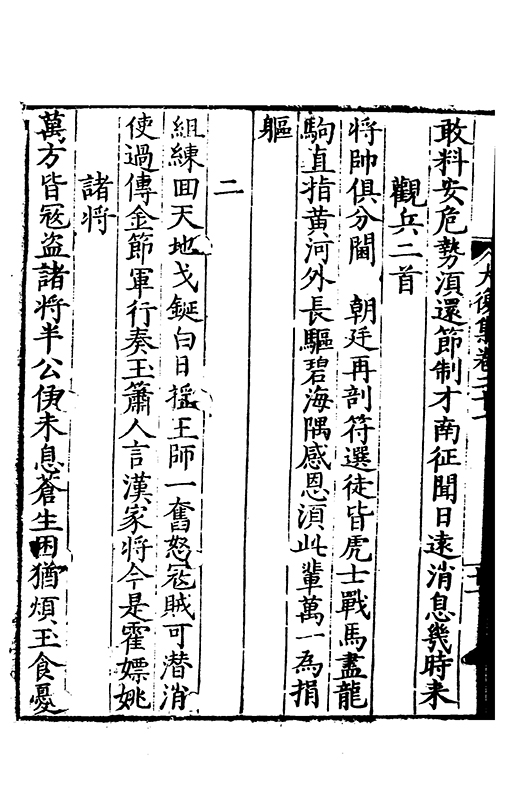 大復集卷二十
敢料安危勢湏還節制才南征聞日遠消息幾時来
觀兵二首
将帥俱分閫　朝廷再剖符選徒皆虎士戰馬盡龍
駒直指黄河外長驅碧海隅感恩湏此輩萬一為捐
軀
二
組練囬天地戈鋋白日揺王師一奮怒寇賊可潜消
使過傳金節軍行奏玉簫人言漢家將今是霍嫖姚
諸將
萬方皆寇盗諸将半公侯未息蒼生困猶煩玉食憂